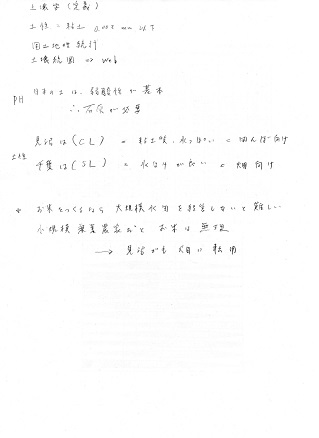 土壌学(定義)
土性 = 粘土 0.002 mm 以下
国土地理 統計
土壌統図 => Web
PH 日本の土は、弱酸性が基本
∴ 石灰が必要
見沼は (CL) = 粘土質、水っぽい = 田んぼ向け
土性
千葉は (SL) = 水はけが良い = 畑向け
* お米をつくるなら 大規模水田を経営しないと難しい
小規模 農家だと お米は 無理
→ 見沼でも 畑に転用